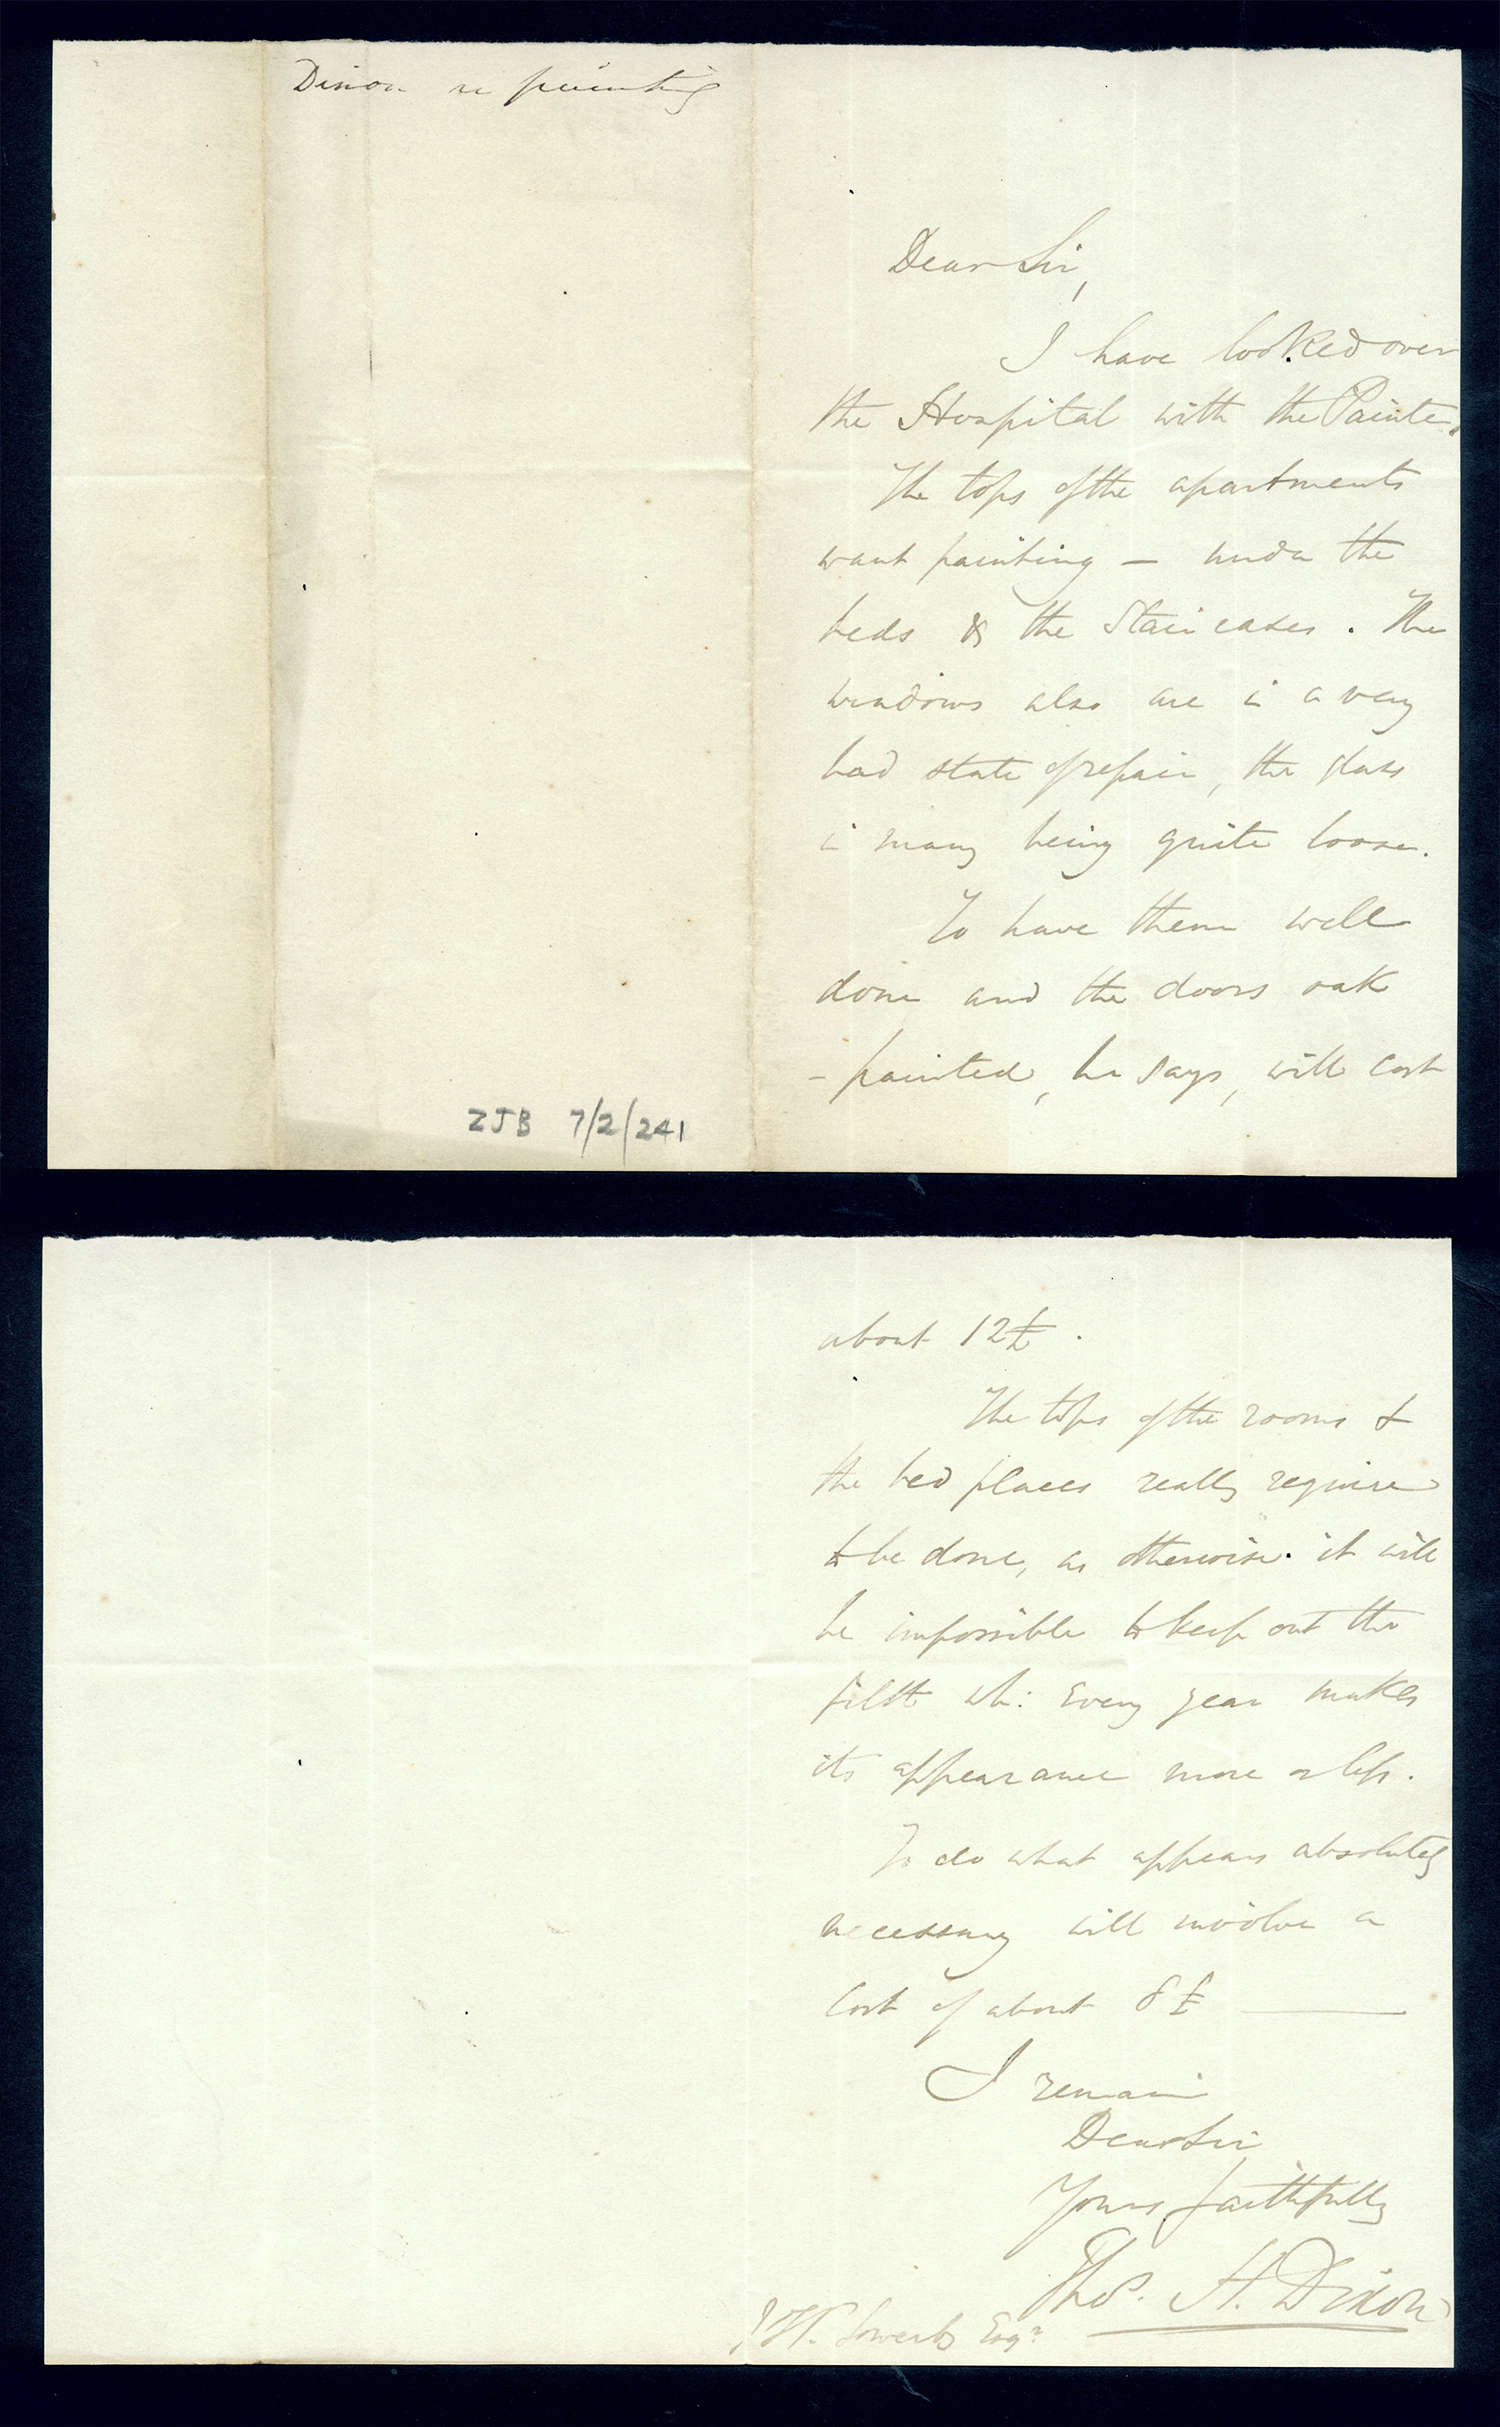 Dixon re painting
Dear Sir,
I have looked over
the Hospital with the Painter.
The tops of the apartments
want painting — under the
beds & the Stair cases. The
windows also are in a very
bad state of repair, the glass
in many being quite loose.
To have them well
done and the doors oak
- painted, he says, will cost
ZJB 7/2/241
about 12£.
The tops of the rooms &
the bed places really require
to be done, as otherwise it will
be impossible to keep out the
filth wh: every year makes
its appearance more or less.
To do what appears absolutely
necessary will involve a
cost of about 8£ ———
I remain
Dear Sir
Yours faithfully
Thos. H. Dixon
W. Sowerby Esqr